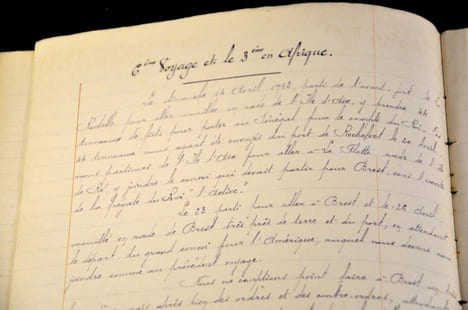 6ème Voyage et le 3ème en Afrique.
Le dimanche 14 Avril, 1782, partis de l'avant-port de La
Rochelle pour aller mouiller en rade de l'Ile d'Aix, y prendre 44
tonneaux de fûts pour porter au Sénégal pour le compte du Roi. Ces
44 tonneaux nous ayant été envoyés du port de Rochefort le 20 Avril
nous partimes de l'Ile d'Aix pour aller à La Flotte rade de l'Ile
de Ré, y joindre le convoi qui devait partir pour Brest, sous l'escorte
de la frégate du Roi "l'active".
Le 23 parti pour aller à Brest et le 26 Avril,
mouillé en rade de Brest très près de terre et du port, en attendant
le départ du grand convoi pour l'Amérique, auquel nous devions nous
joindre comme au précédent voyage.
Nous ne comptions point faire à Brest un
mais après bien des ordres et des contre-ordres, attendant